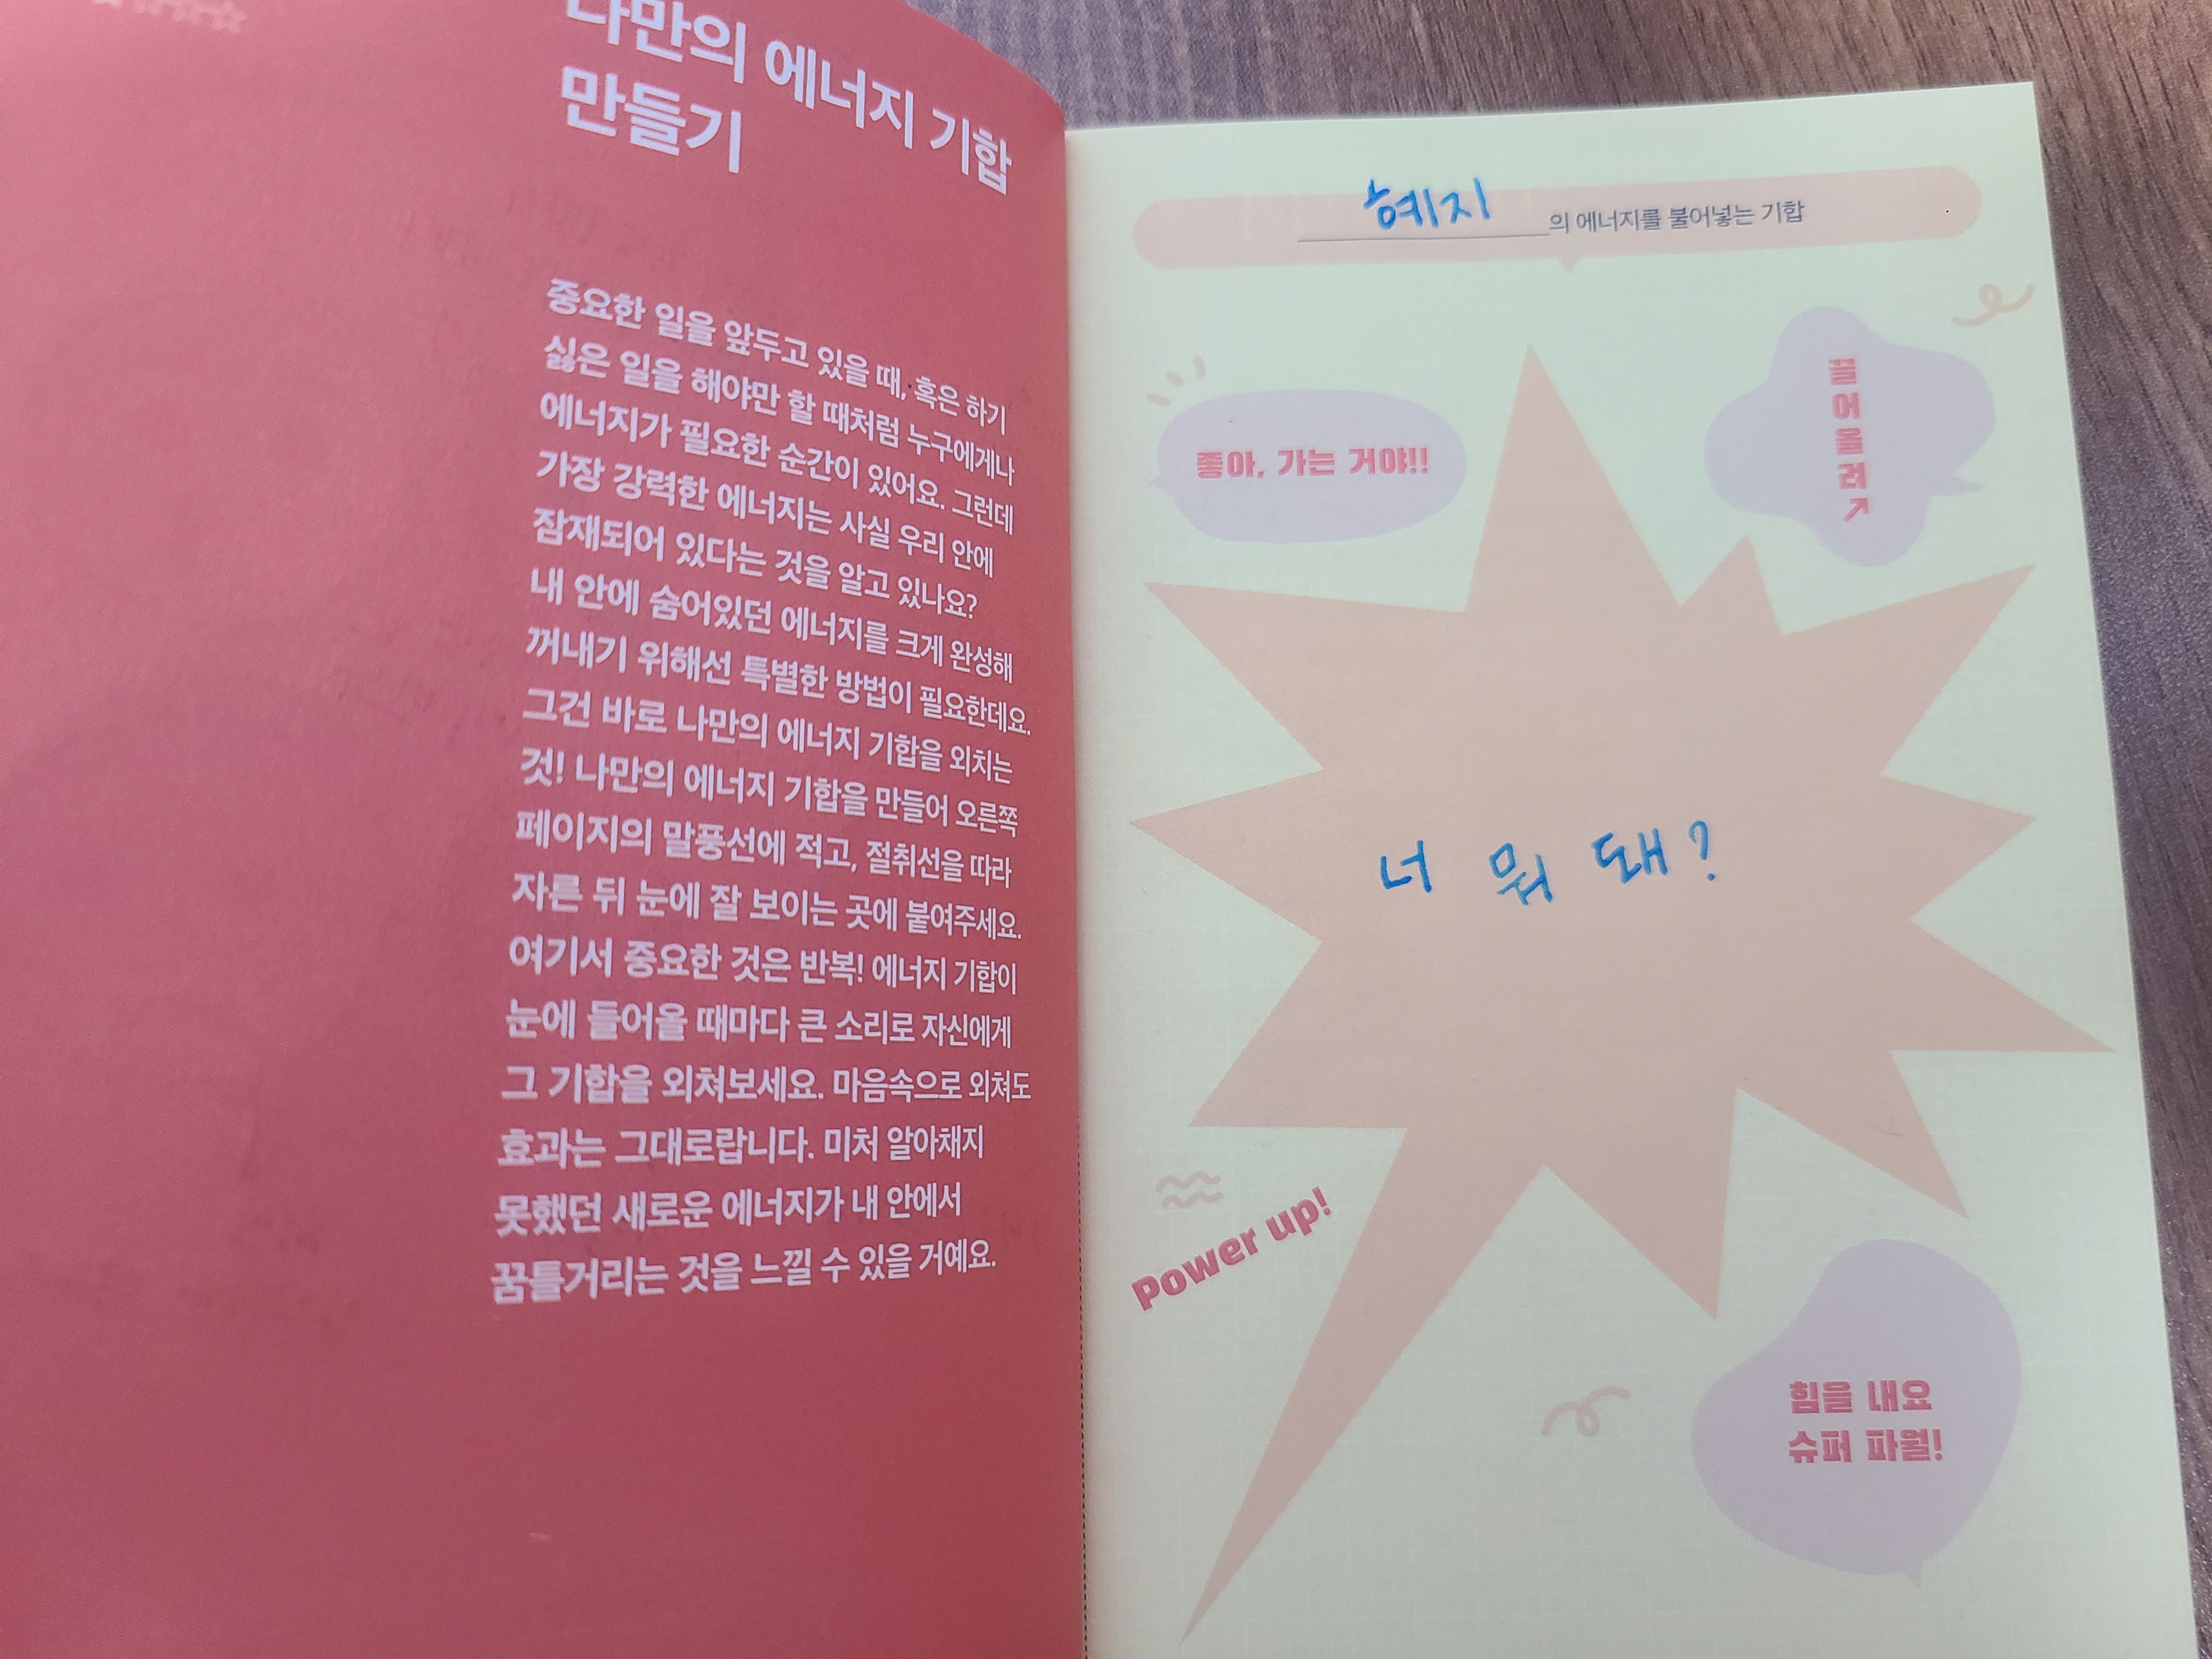 나만의 에너지 기합
만들기
중요한 일을 앞두고 있을 때, 혹은 하기
싫은 일을 해야만 할 때처럼 누구에게나
에너지가 필요한 순간이 있어요. 그런데
가장 강력한 에너지는 사실 우리 안에
잠재되어 있다는 것을 알고 있나요?
내 안에 숨어있던 에너지를 크게 완성해
꺼내기 위해선 특별한 방법이 필요한데요.
그건 바로 나만의 에너지 기합을 외치는
것! 나만의 에너지 기합을 만들어 오른쪽
페이지의 말풍선에 적고, 절취선을 따라
자른 뒤 눈에 잘 보이는 곳에 붙여주세요.
여기서 중요한 것은 반복! 에너지 기합이
눈에 들어올 때마다 큰 소리로 자신에게
그 기합을 외쳐보세요. 마음속으로 외쳐도
효과는 그대로랍니다. 미처 알아채지
못했던 새로운 에너지가 내 안에서
꿈틀거리는 것을 느낄 수 있을 거예요.
혜지의 에너지를 불어넣는 기합
좋아, 가는 거야!!
끌어올려↗
너 뭐 돼?
Power up!
힘을 내요
슈퍼 파월!